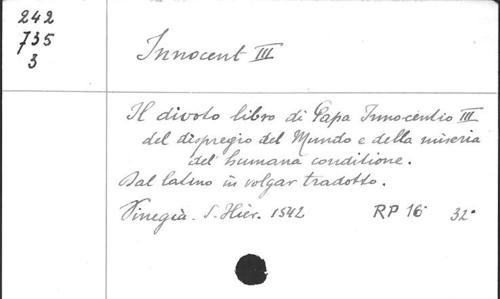 242
735
3
Innocent III
Il divoto libro di Papa Innocentio III
del dispregio del Mundo e della miseria
del humana conditione.
Dal latino in volgar tradotto.
Vinegia. S. Hier. 1542 RP 16° 32°